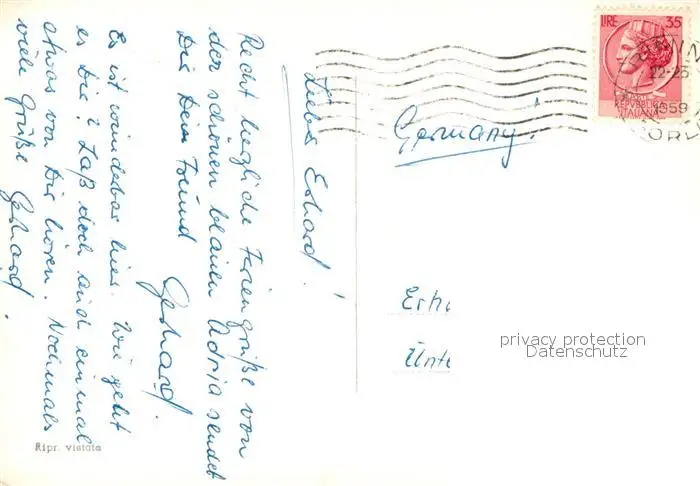 Lieber Erhard!
Recht herzliche Feriengrüße von
der schönen blauen Adria sendet
Dir Dein Freund Gerhard.
Es ist wunderbar hier. Wie geht
es Dir? Laß doch auch einmal
etwas von Dir hören. Nochmals
viele Grüße Gerhard.
Ripr. vietata
Germany!
Erh
Unte
LIRE 35
REPVBBLICA
ITALIANA
22-23
1959
privacy protection
Datenschutz